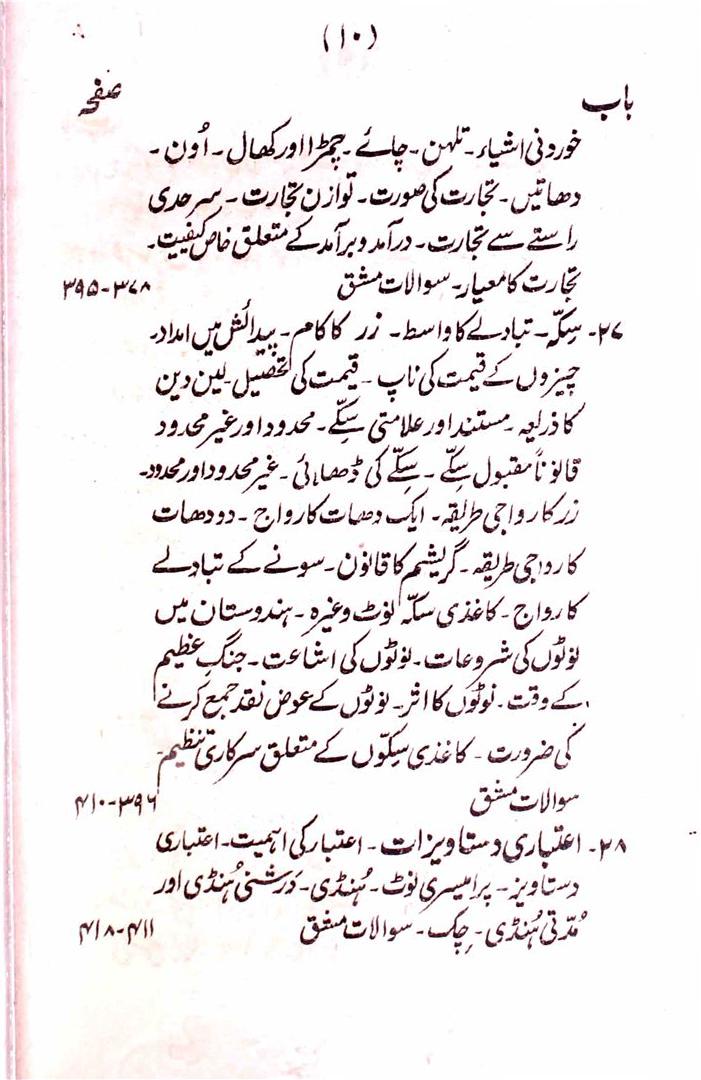 (۱۰)
باب صفحہ
خوردنی اشیاء۔ تلہن۔ چائے۔ چمڑا اور کھال۔ اُون۔
دھاتیں۔ تجارت کی صورت۔ توازن تجارت۔ سرحدی
راستے سے تجارت۔ درآمد و برآمد کے متعلق خاص کیفیت۔
تجارت کا معیار۔ سوالات مشق ۳۷۸-۳۹۵
۲۷۔ سِکّہ۔ تبادلے کا واسط۔ زر کا کام۔ پیدائش میں امداد۔
چیزوں کے قیمت کی ناپ۔ قیمت کی تحصیل۔ لین دین
کا ذریعہ۔ مستند اور علامتی سِکّے۔ محدود اور غیر محدود
قانوناً مقبول سِکّے۔ سِکّے کی ڈھلائی۔ غیر محدود اور محدود۔
زر کا رواجی طریقہ۔ ایک دھات کا رواج۔ دو دھات
کا رواجی طریقہ۔ گریشم کا قانون۔ سونے کے تبادلے
کا رواج۔ کاغذی سکّہ نوٹ وغیرہ۔ ہندوستان میں
نوٹوں کی شروعات۔ نوٹوں کی اشاعت۔ جنگِ عظیم
کے وقت۔ نوٹوں کا اثر۔ نوٹوں کے عوض نقد جمع کرنے
کی ضرورت۔ کاغذی سِکّوں کے متعلق سرکاری تنظیم۔
سوالات مشق ۳۹۶-۴۱۰
۲۸۔ اعتباری دستاویزات۔ اعتبار کی اہمیت۔ اعتباری
دستاویز۔ پرامیسری نوٹ۔ ہُنڈی۔ دَرشنی ہُنڈی اور
مُدّتی ہُنڈی۔ چِک۔ سوالات مشق ۴۱۱-۴۱۸